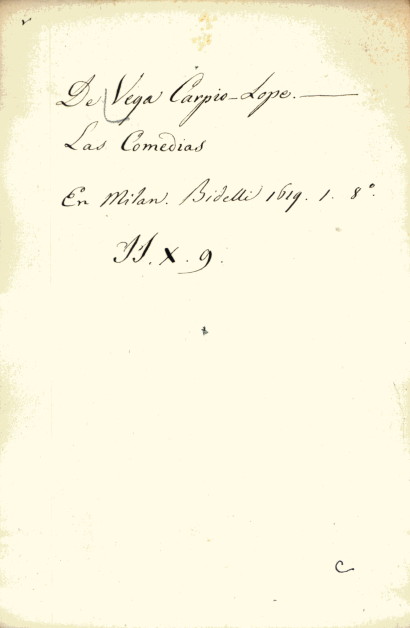 De Vega Carpio-Lope.—
Las Comedias
En Milan. Bidelli 1619. 1. 8°.
JJ. X. 9.
C